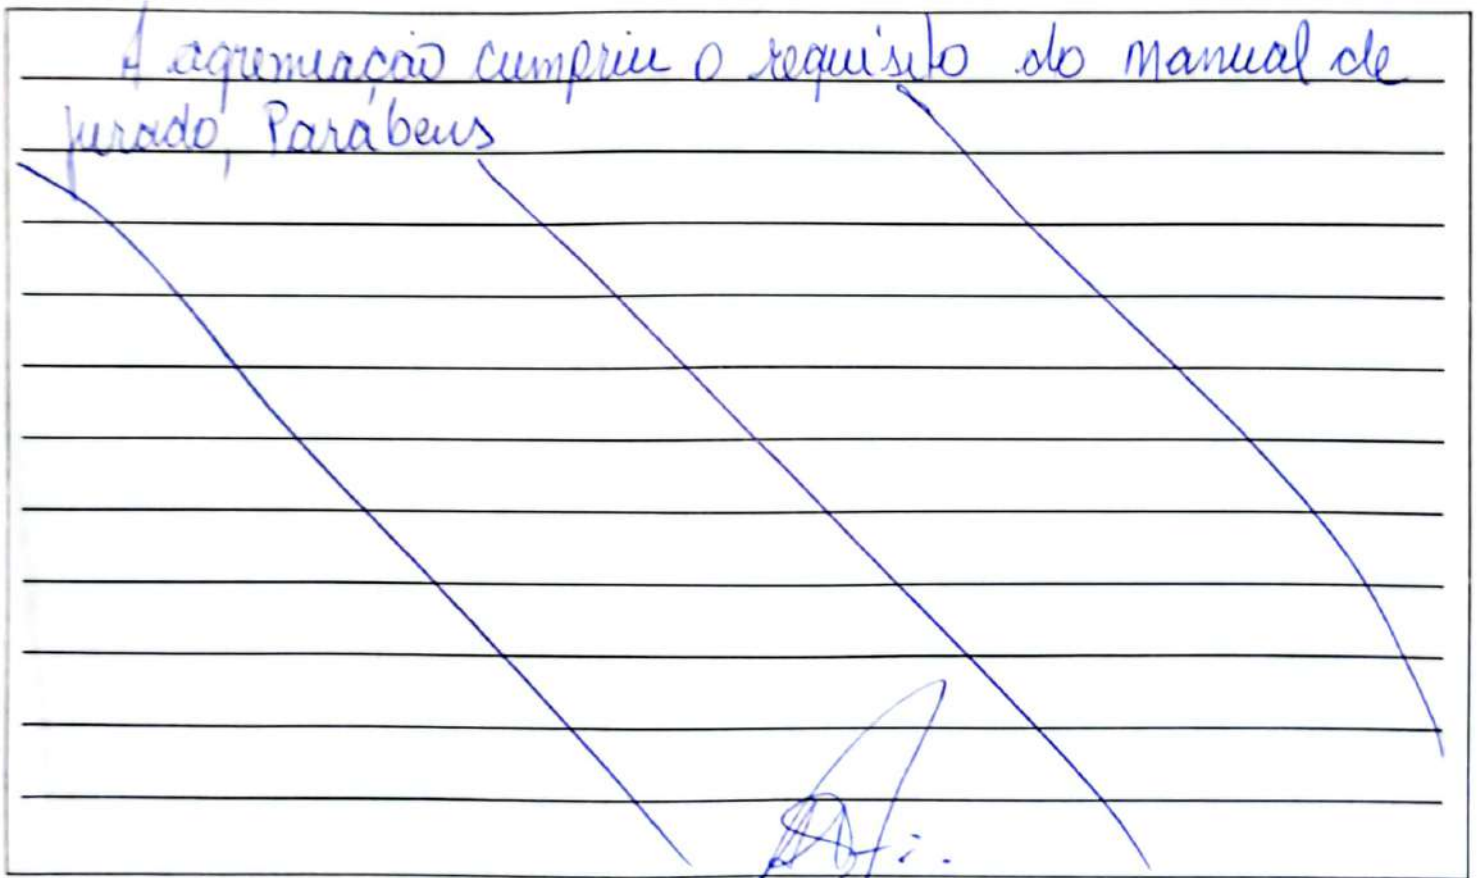 A agremiação cumpriu o requisito do manual de
jurado, Parábens